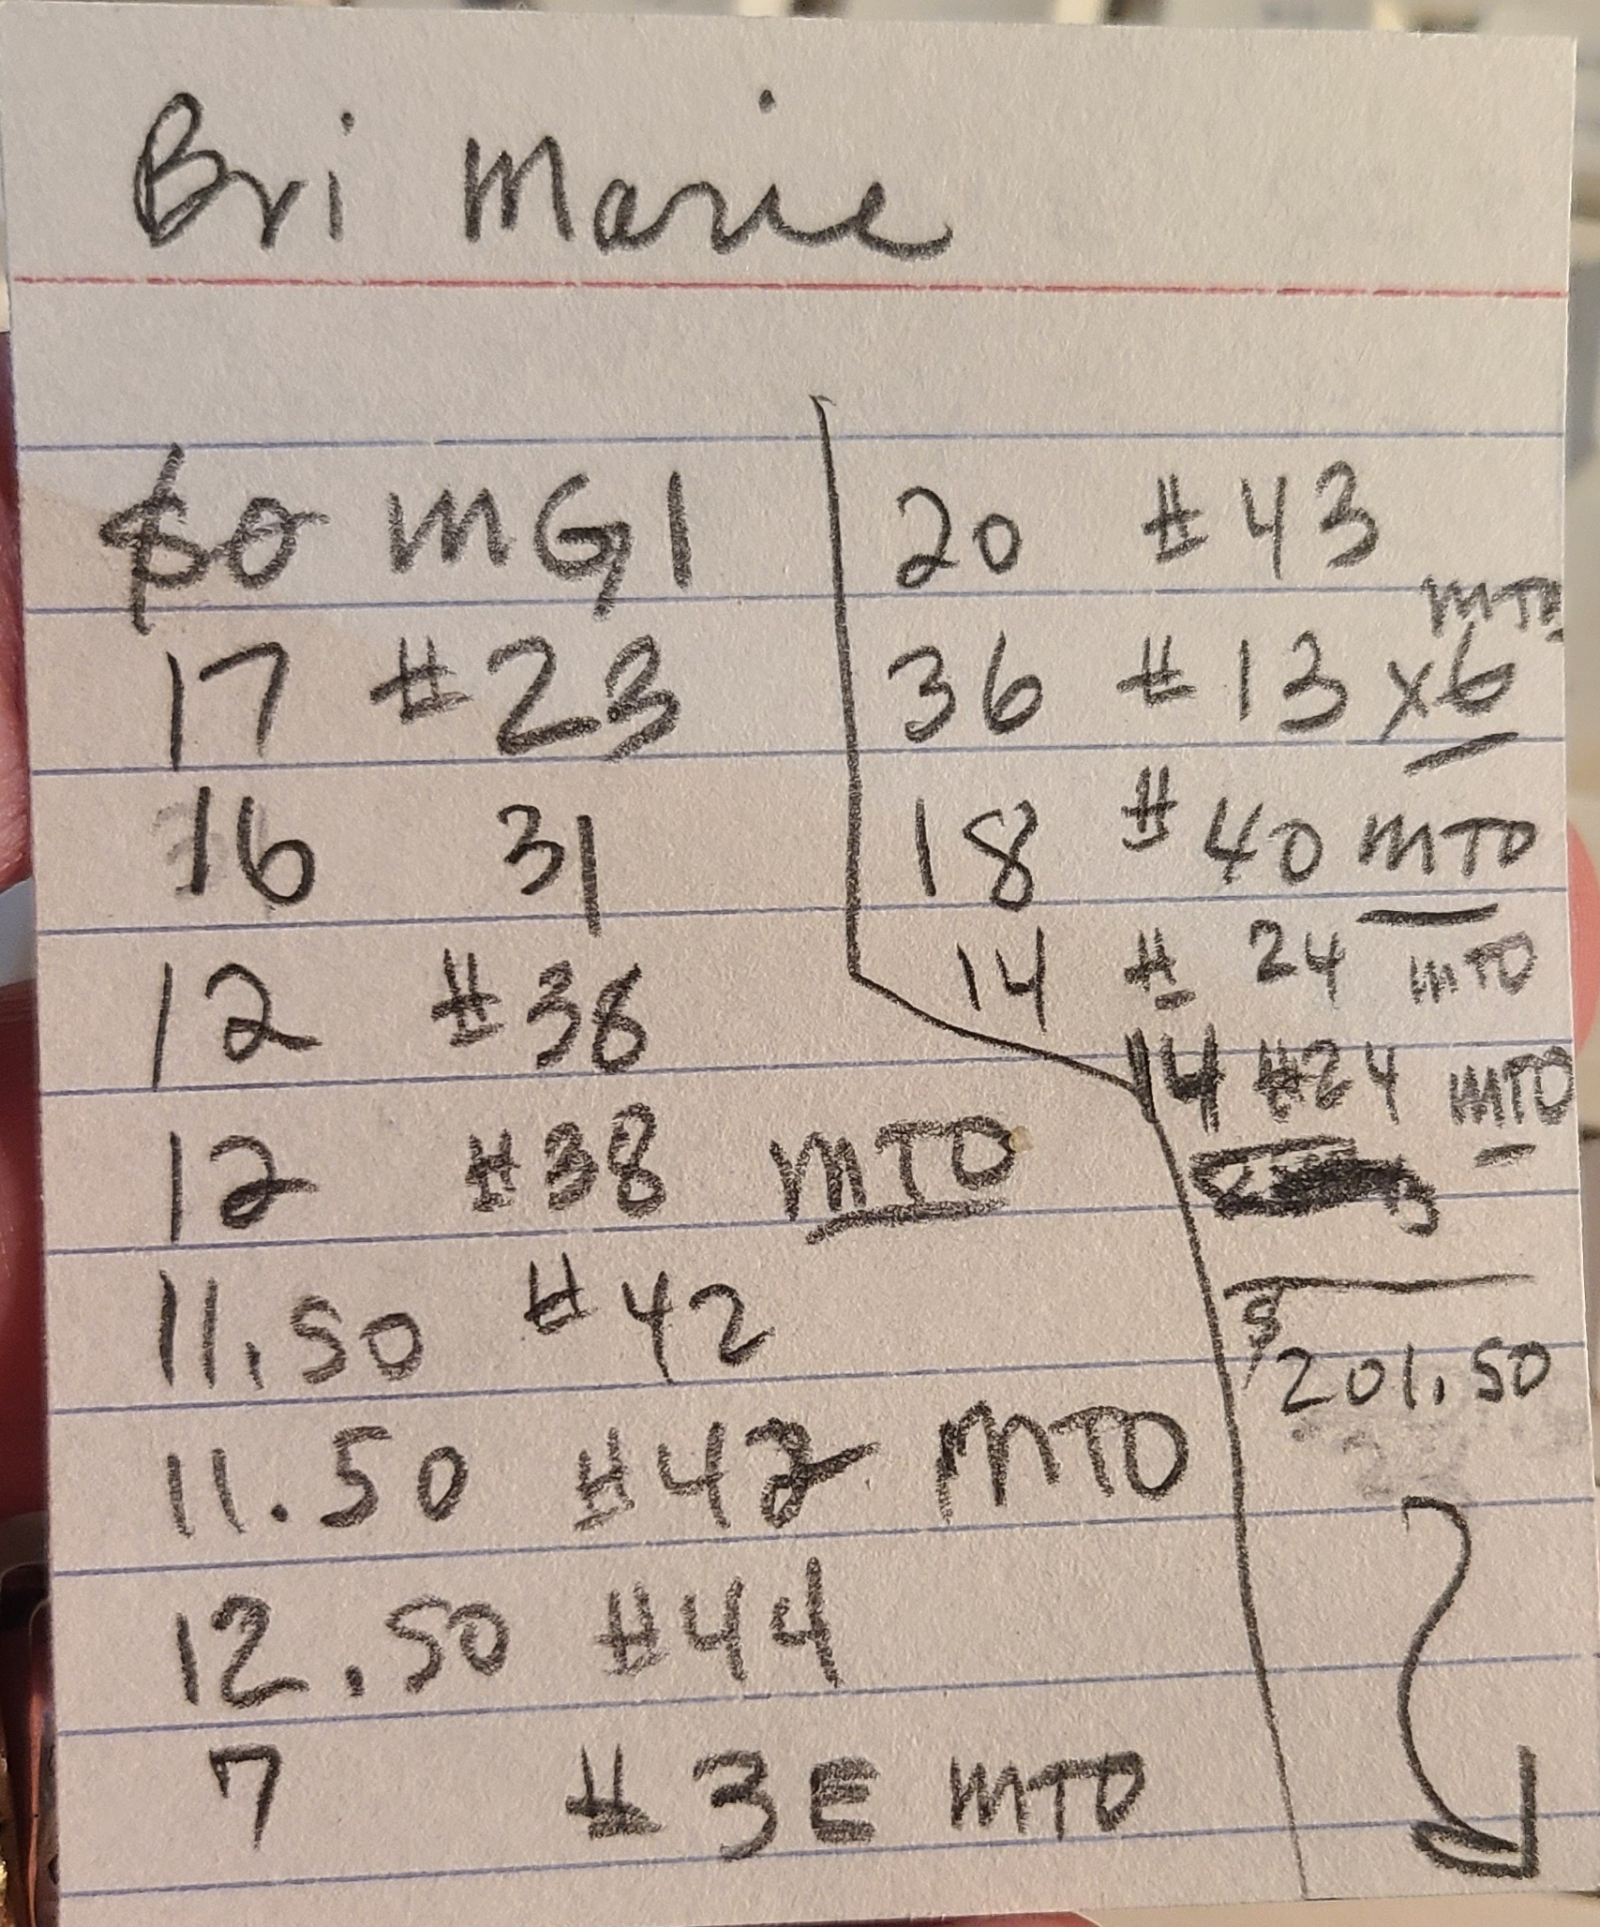 Bri Marie
$0 MG1
17 #23
16 31
12 #38
12 #38 MTO
11.50 #42
11.50 #42 MTO
12.50 #44
7 #3E MTO
20 #43
MTO
36 #13 x6
18 #40 MTO
14 # 24 MTO
14 #24 MTO
$201.50